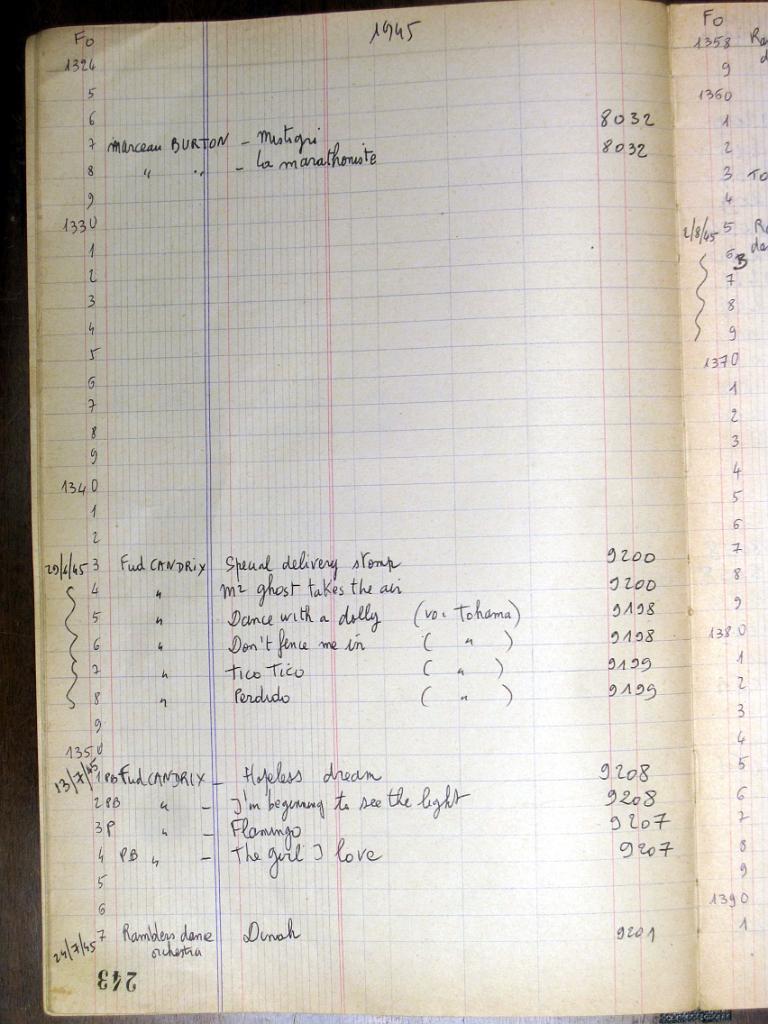 1945
Fo
1324
5
6 8032
7 Marceau BURTON - Mistigri 8032
8 " " - La marathoniste
9
1330
1
2
3
4
5
6
7
8
9
1340
1
2
29/6/45 3 Fud CANDRIX Special delivery stomp 9200
4 " Mr ghost takes the air 9200
5 " Dance with a dolly (voc Tohama) 9198
6 " Don't fence me in ( " ) 9198
7 " Tico Tico ( " ) 9199
8 " Perdido ( " ) 9199
9
1350
13/7/45 1 PB Fud CANDRIX - Hopeless dream 9208
2 PB " - I'm beginning to see the light 9208
3 P " - Flamingo 9207
4 PB " - The girl I love 9207
5
6
24/7/45 7 Ramblers dance Dinah 9201
orchestra
243
Fo
1358 Ra
9
1360
1
2
3 To
4
2/8/45 5
6 B
7
8
9
1370
1
2
3
4
5
6
7
8
9
1380
1
2
3
4
5
6
7
8
9
1390
1